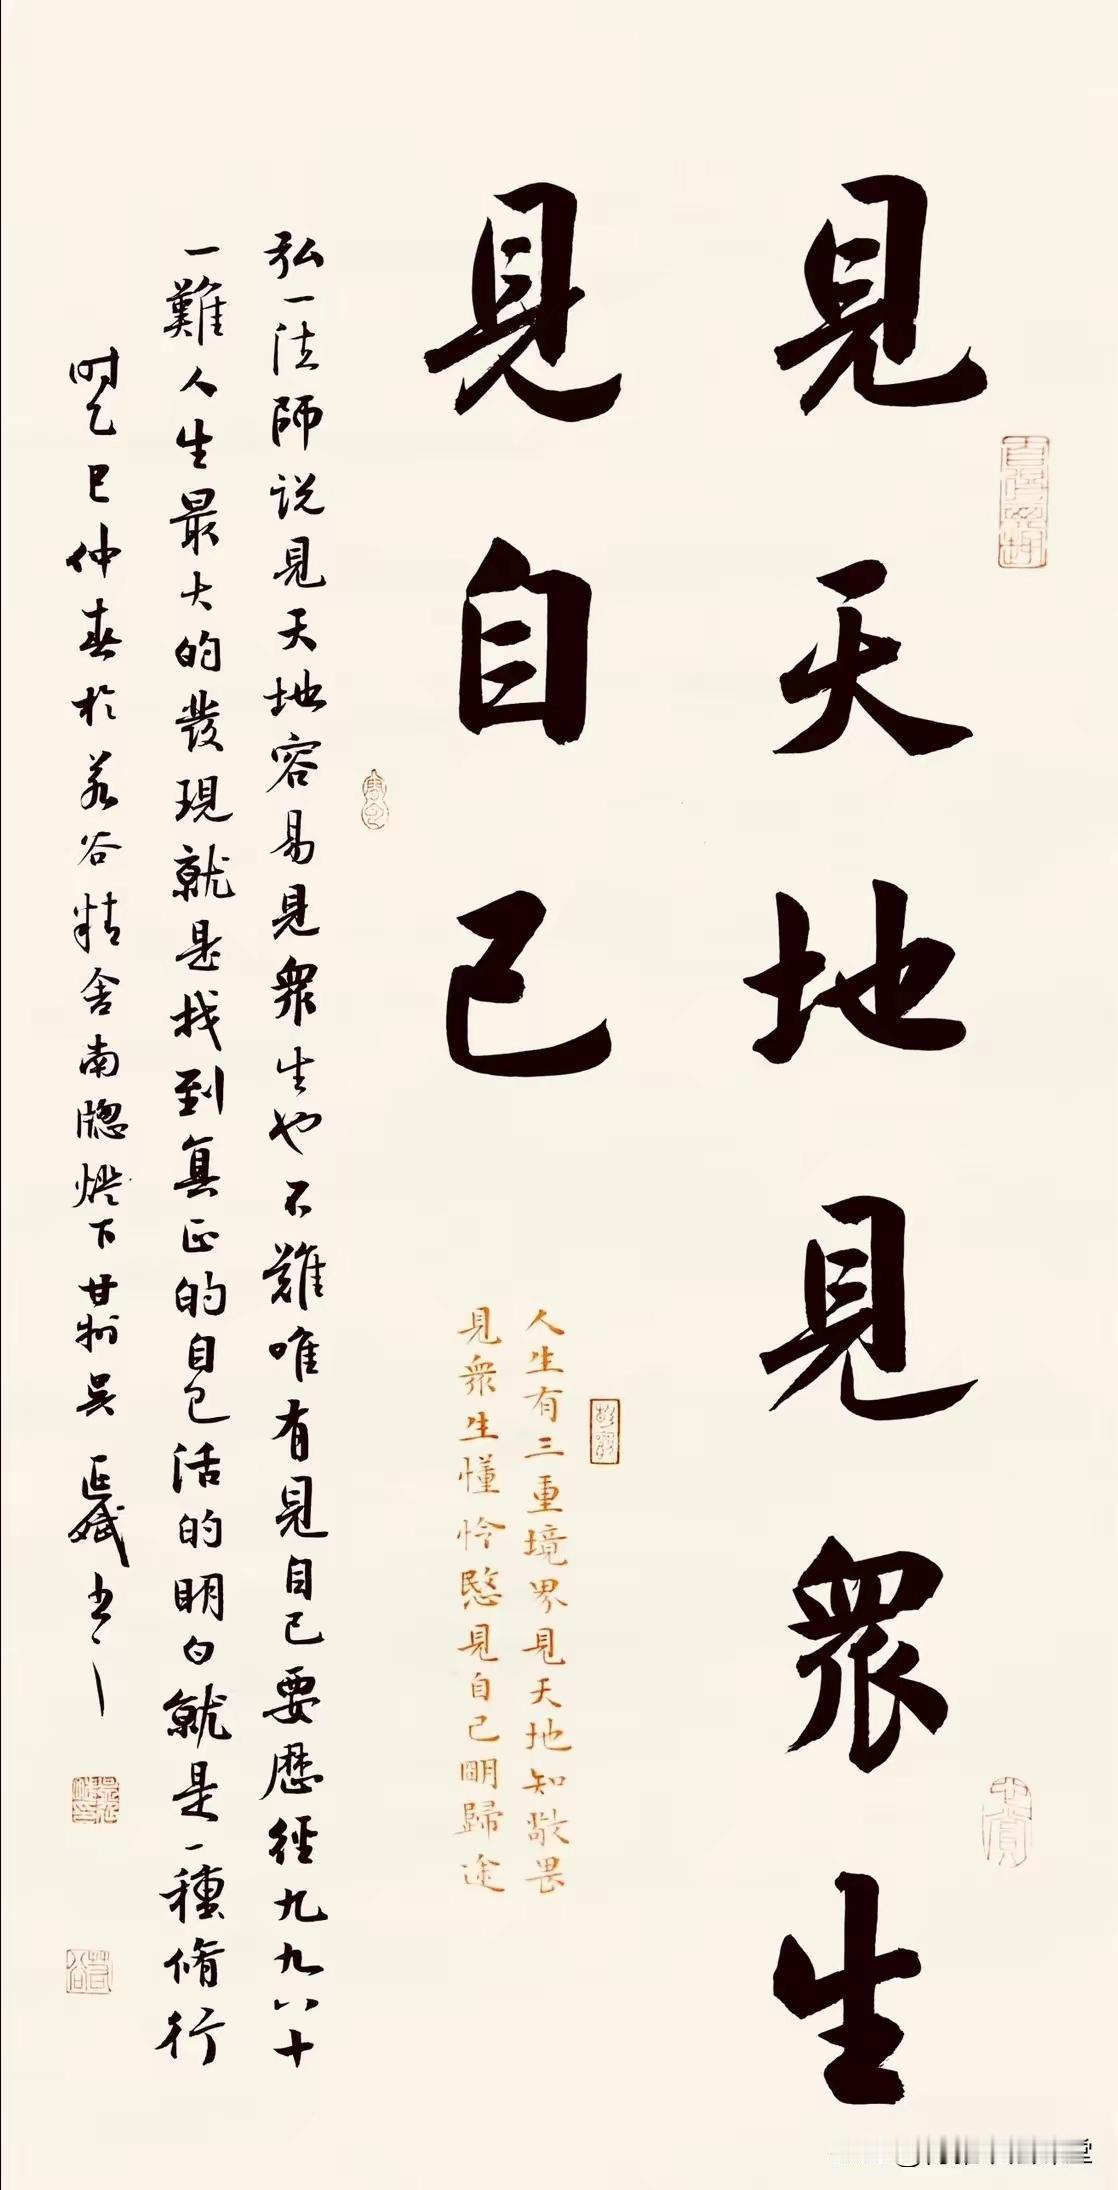 見天地見眾生
見自己
人生有三重境界見天地知敬畏
見眾生懂怜愍見自己朙歸途
弘一法師说見天地容易見眾生也不難唯有見自己要歷經九九八十
一難人生最大的發現就是找到真正的自己活的明白就是一種脩行
时乙巳仲春於若谷精舍南牕燈下甘州吴正斌书